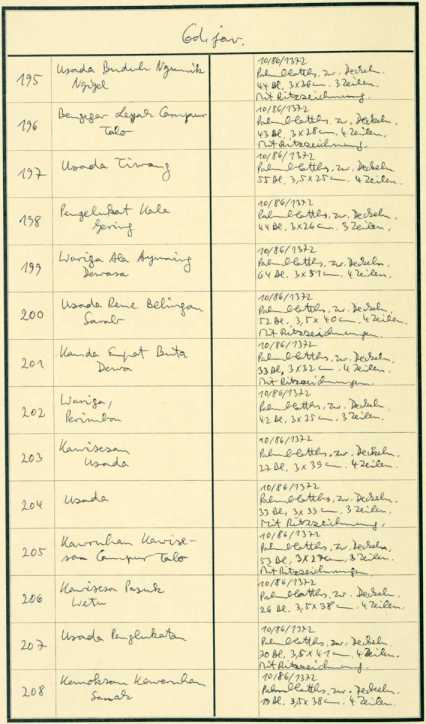 Cod. jav.
195 Usada Buduh Ngumik
Ngigel
10/86/1372
Palmblatths. zw. Deckeln.
44 Bl. 3x26 cm. 3 Zeilen.
Mit Ritzzeichnung.
196 Leyak Campur
Talo
10/86/1372
Palmblatths. zw. Deckeln.
43 Bl. 3x28 cm. 4 Zeilen.
Mit Ritzzeichnung.
197 Usada Tiwang
10/86/1372
Palmblatths. zw. Deckeln.
55 Bl. 3,5x25 cm. 4 Zeilen.
198 Pengelukat Kala
Gering
10/86/1372
Palmblatths. zw. Deckeln.
44 Bl. 3x26 cm. 3 Zeilen.
199 Wariga Ala Ayuning
Dewasa
10/86/1372
Palmblatths. zw. Deckeln.
64 Bl. 3x51 cm. 4 Zeilen.
200 Usada Rene Belingan
Sarab
10/86/1372
Palmblatths. zw. Deckeln.
52 Bl. 3,5x40 cm. 4 Zeilen.
Mit Ritzzeichnungen.
201 Kanda Empat Buta
Dewa
10/86/1372
Palmblatths. zw. Deckeln.
33 Bl. 3x32 cm. 4 Zeilen.
Mit Ritzzeichnungen.
202 Wariga,
Perimbon
10/86/1372
Palmblatths. zw. Deckeln.
42 Bl. 3x25 cm. 3 Zeilen.
203 Kawisesan
Usada
10/86/1372
Palmblatths. zw. Deckeln.
27 Bl. 3x39 cm. 4 Zeilen.
204 Usada
10/86/1372
Palmblatths. zw. Deckeln.
33 Bl. 3x33 cm. 3 Zeilen.
Mit Ritzzeichnung.
205 Kawruhan Kawise-
san Campur Talo
10/86/1372
Palmblatths. zw. Deckeln.
53 Bl. 3x27 cm. 3 Zeilen.
Mit Ritzzeichnungen.
206 Kawisesa Pasuk
Wetu
10/86/1372
Palmblatths. zw. Deckeln.
26 Bl. 3,5x38 cm. 4 Zeilen.
207 Usada Penglukatan
10/86/1372
Palmblatths. zw. Deckeln
70 Bl. 3,5x41 cm. 4 Zeilen.
Mit Ritzzeichnungen.
208 Kemoksan Kawruhan
Sanak
10/86/1372
Palmblatths. zw. Deckeln.
19 Bl. 3,5x38 cm. 4 Zeilen.